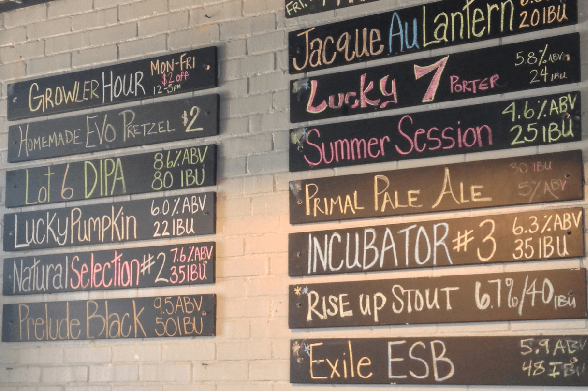 GROWLER HOUR MON-FRI
$2 off
12-5PM
HOMEMADE EVO PRETZEL $2
Lot 6 DIPA 8.6% ABV
80 IBU
LUCKY PUMPKIN 6.0% ABV
22 IBU
Natural Selection #2 7.6% ABV
35 IBU
Prelude Black 9.5 ABV
50 IBU
FRI.
Jacque Au Lantern
20 IBU
Lucky 7 PORTER 5.8% ABV
24 IBU
Summer Session 4.6% ABV
25 IBU
PRIMAL PALE ALE 30 IBU
5% ABV
INCUBATOR #3 6.3% ABV
35 IBU
RISE UP STOUT 6.7%/40 IBU
Exile ESB 5.9 ABV
48 IBU